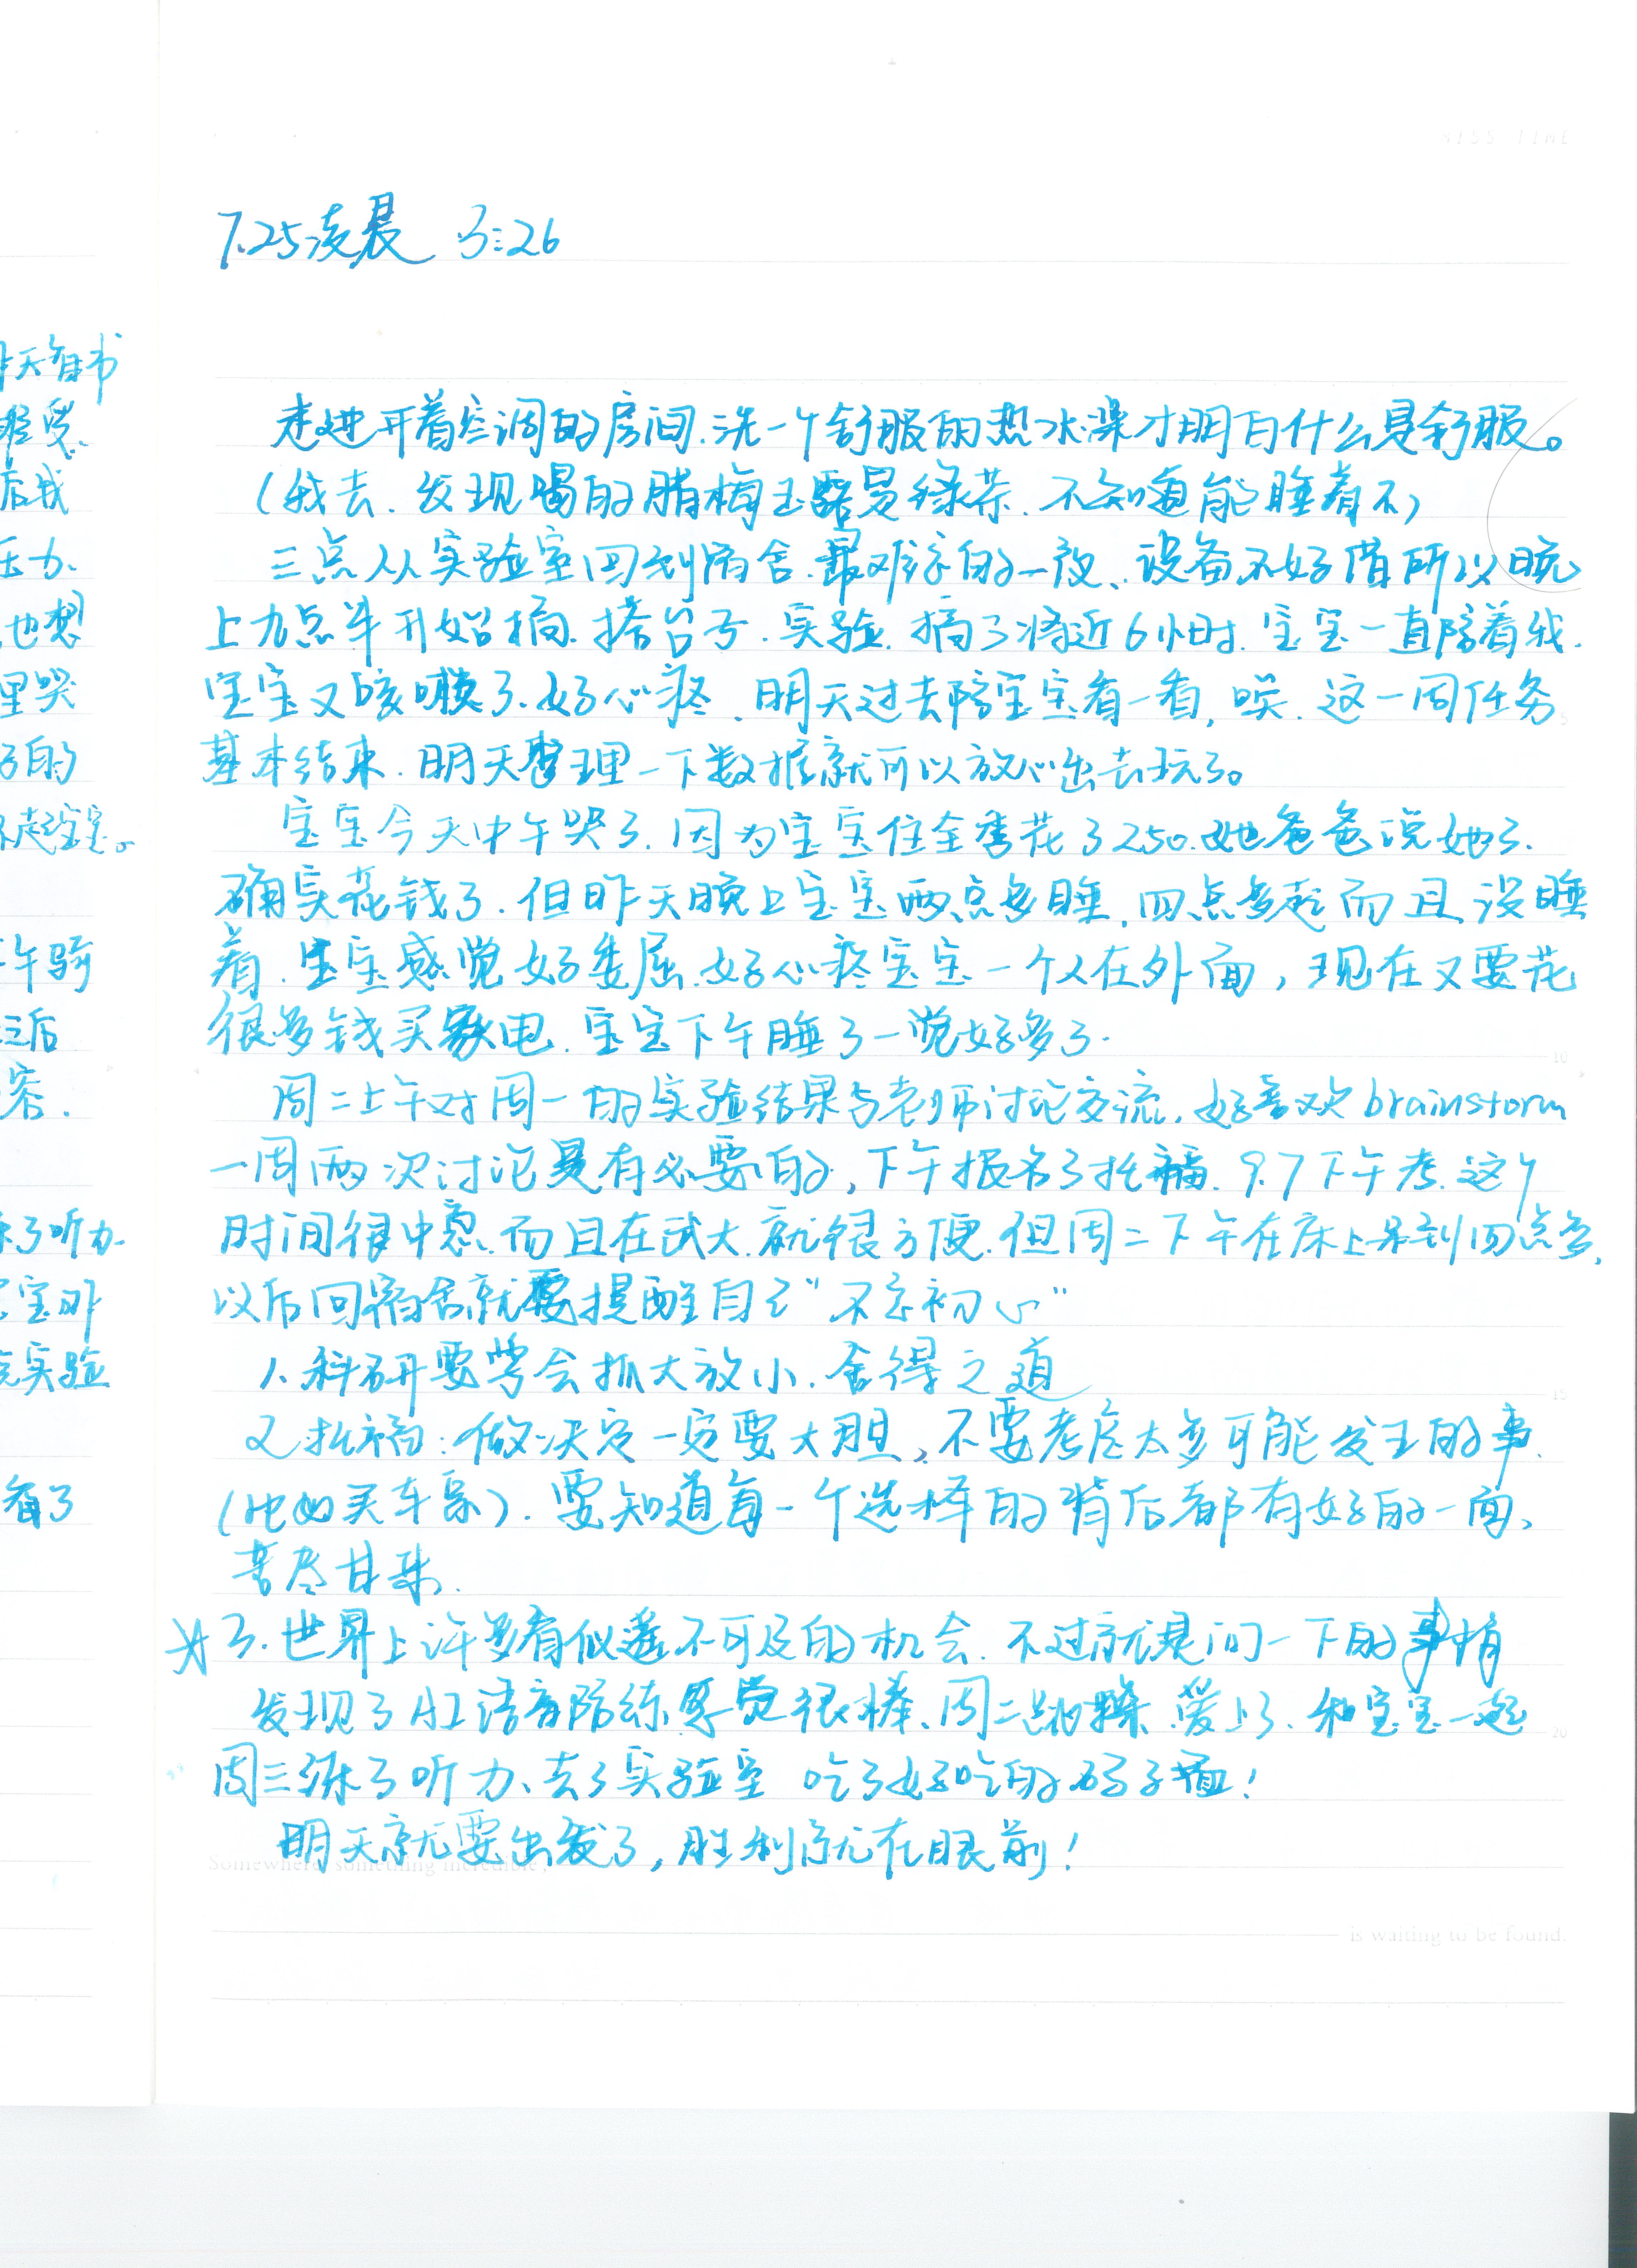 MISS TIME
7.25凌晨 3:26
走进开着空调的房间.洗一个舒服的热水澡才明白什么是舒服。
(我去.发现喝的腊梅玉露是绿茶.不知道能睡着不)
三点从实验室回到宿舍.最难忘的一夜、设备不好借所以晚
上九点半开始搞.搭台子.实验.搞了将近6小时.宝宝一直陪着我.
宝宝又咳嗽了.好心疼.明天过去陪宝宝看一看,唉.这一周任务
基本结束.明天整理一下数据就可以放心出去玩了。
宝宝今天中午哭了.因为宝宝住全季花了250.她爸爸说她了.
确实花钱了.但昨天晚上宝宝两点多睡,四点多起而且没睡
着.宝宝感觉好委屈.好心疼宝宝一个人在外面,现在又要花
很多钱买家电.宝宝下午睡了一觉好多了.
周二上午对周一的实验结果与老师讨论交流,好喜欢brainstorm
一周两次讨论是有必要的,下午报名了托福.9.7下午考.这个
时间很中意.而且在武大.就很方便.但周二下午在床上呆到四点多,
以后回宿舍就要提醒自己“不忘初心”
1.科研要学会抓大放小.舍得之道
2.托福:做决定一定要大胆,不要考虑太多可能发生的事.
(比如买车票).要知道每一个选择的背后都有好的一面、
苦尽甘来.
☆3.世界上许多看似遥不可及的机会.不过就是问一下的事情
发现了AI语音陪练感觉很棒、周二跳操.爱上了.和宝宝一起
周三练了听力、去了实验室 吃了好吃的码子面!
明天就要出发了,胜利就在眼前!
Somewhere, something incredible
is waiting to be found.
5
10
15
20
昨天看书
难受.
后我
压力.
也想
里哭
的
不起宝宝。
午骑
之后
容.
练了听力.
宝昨
实验
看了